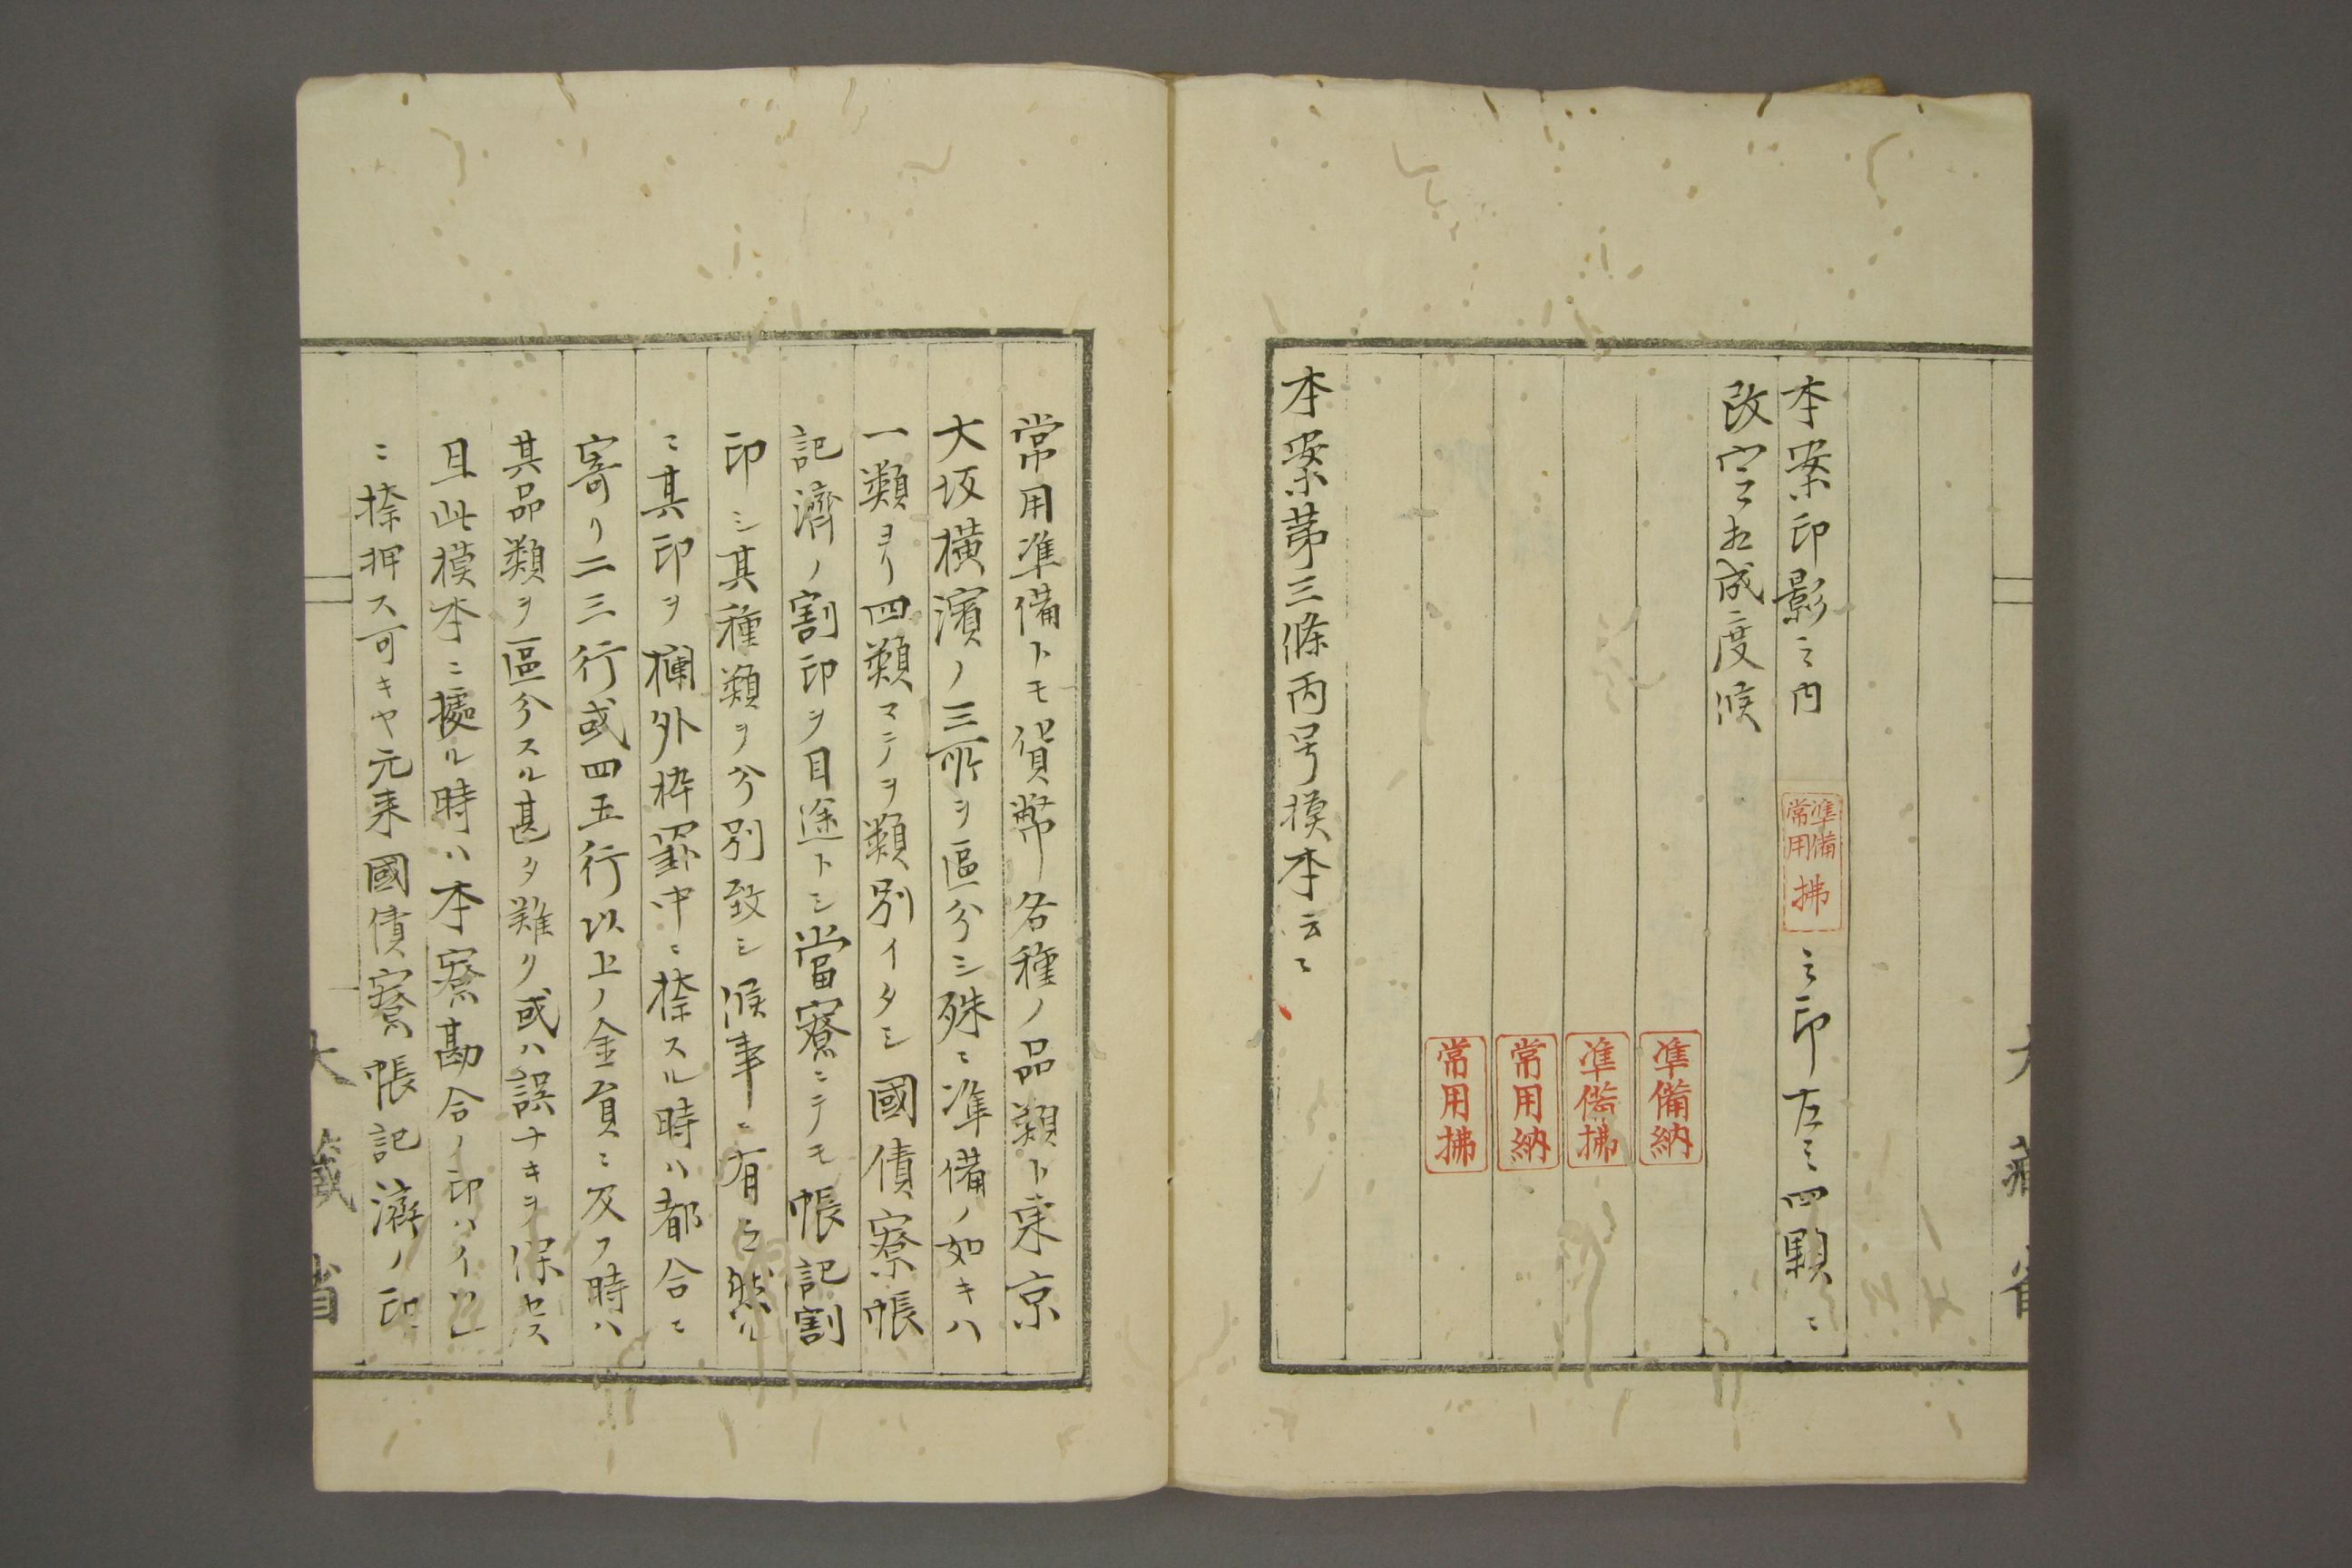 本案印影之内 準備常用拂 之印左之四顆ニ
改定相成度候
準備納
準備拂
常用納
常用拂
本案第三條丙号摸本云々
常用準備トモ貨幣各種ノ品類ト東京
大坂横濱ノ三所ヲ區分シ殊ニ準備ノ如キハ
一類ヨリ四類マテヲ類別イタシ國債寮帳
記濟ノ割印ヲ目途トシ當寮ニテモ帳記割
印シ其種類ヲ分別致シ候事ニ有之然ル
ニ其印ヲ欄外枠罫中ニ捺スル時ハ都合ニ
寄リ二三行或四五行以上ノ金員ニ及フ時ハ
其品類ヲ區分スル甚タ難ク或ハ誤ナキヲ保セス
且此摸本ニ據ル時ハ本寮勘合ノ印ハイツレ
ニ捺押ス可キヤ元来國債寮帳記濟ノ印
大藏省